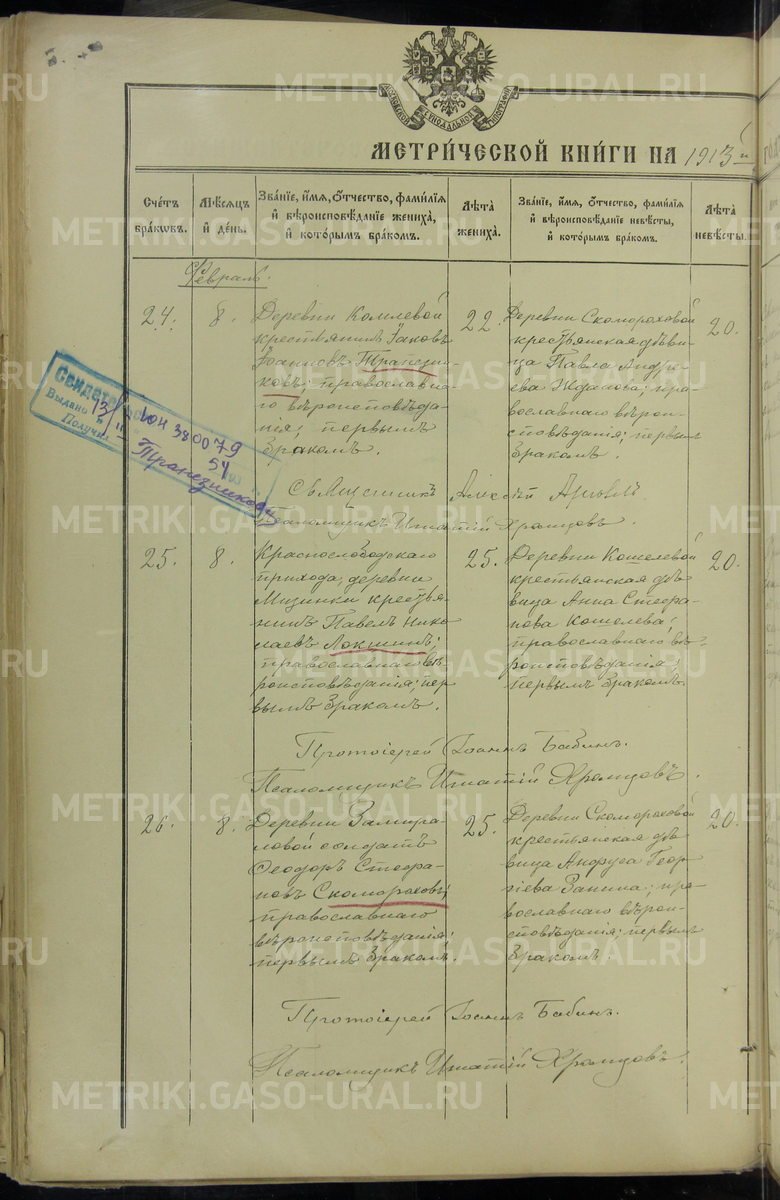 МОСКОВСКОЙ СѴНОДАЛЬНОЙ ТИПОГРАФІИ
МЕТРИ́ЧЕСКОЙ КНИ́ГИ НА 1913й
Сче́тъ бра́кωвъ.
Мѣ́сяцъ и҆ де́нь.
Зва́нїе, и҆́мя, ѻ҆́тчество, фами́лїя и҆ вѣроисповѣ́данїе жениха̀, и҆ кото́рымъ бра́комъ.
Лѣ̑та жениха̀.
Зва́нїе, и҆́мя, ѻ҆́тчество, фами́лїя и҆ вѣроисповѣ́данїе невѣ́сты, и҆ кото́рымъ бра́комъ.
Лѣ̑та невѣ́сты.
Февраль.
24.
8.
Деревни Комлевой
крестьянинъ Іаковъ
Іоанновъ Трапезни-
ковъ; православна-
го вѣроисповѣда-
нія; первымъ
бракомъ.
22.
Деревни Скомороховой
крестьянская дѣви-
ца Павла Андре-
ева Жданова; пра-
вославнаго вѣрои-
сповѣданія; первымъ
бракомъ.
20.
Свидетель
Выдано 13/II
Получил
ЮН 380079
54
Трапезников
Священникъ Алексѣй
Псаломщикъ Игнатій Храмцовъ.
25.
8.
Краснослободскаго
прихода, деревни
Мизинки крестья-
нинъ Павелъ Нико-
лаевъ Локшинъ;
православнаго вѣ-
роисповѣданія; пер-
вымъ бракомъ.
25.
Деревни Кошелевой
крестьянская дѣ-
вица Анна Стефа-
нова Кошелева;
православнаго вѣ-
роисповѣданія;
первымъ бракомъ.
20.
Протоіерей Іоаннъ Бабинъ.
Псаломщикъ Игнатій Храмцовъ.
26.
8.
Деревни Замира-
ловой солдатъ
Ѳеодоръ Стефа-
новъ Скомороховъ;
православнаго
вѣроисповѣданія;
первымъ бракомъ.
25.
Деревни Скомороховой
крестьянская дѣ-
вица Андруса Геор-
гіева Занина; пра-
вославнаго вѣрои-
сповѣданія; первымъ
бракомъ.
20.
Протоіерей Іоаннъ Бабинъ.
Псаломщикъ Игнатій Храмцовъ.
METRIKI.GASO-URAL.RU